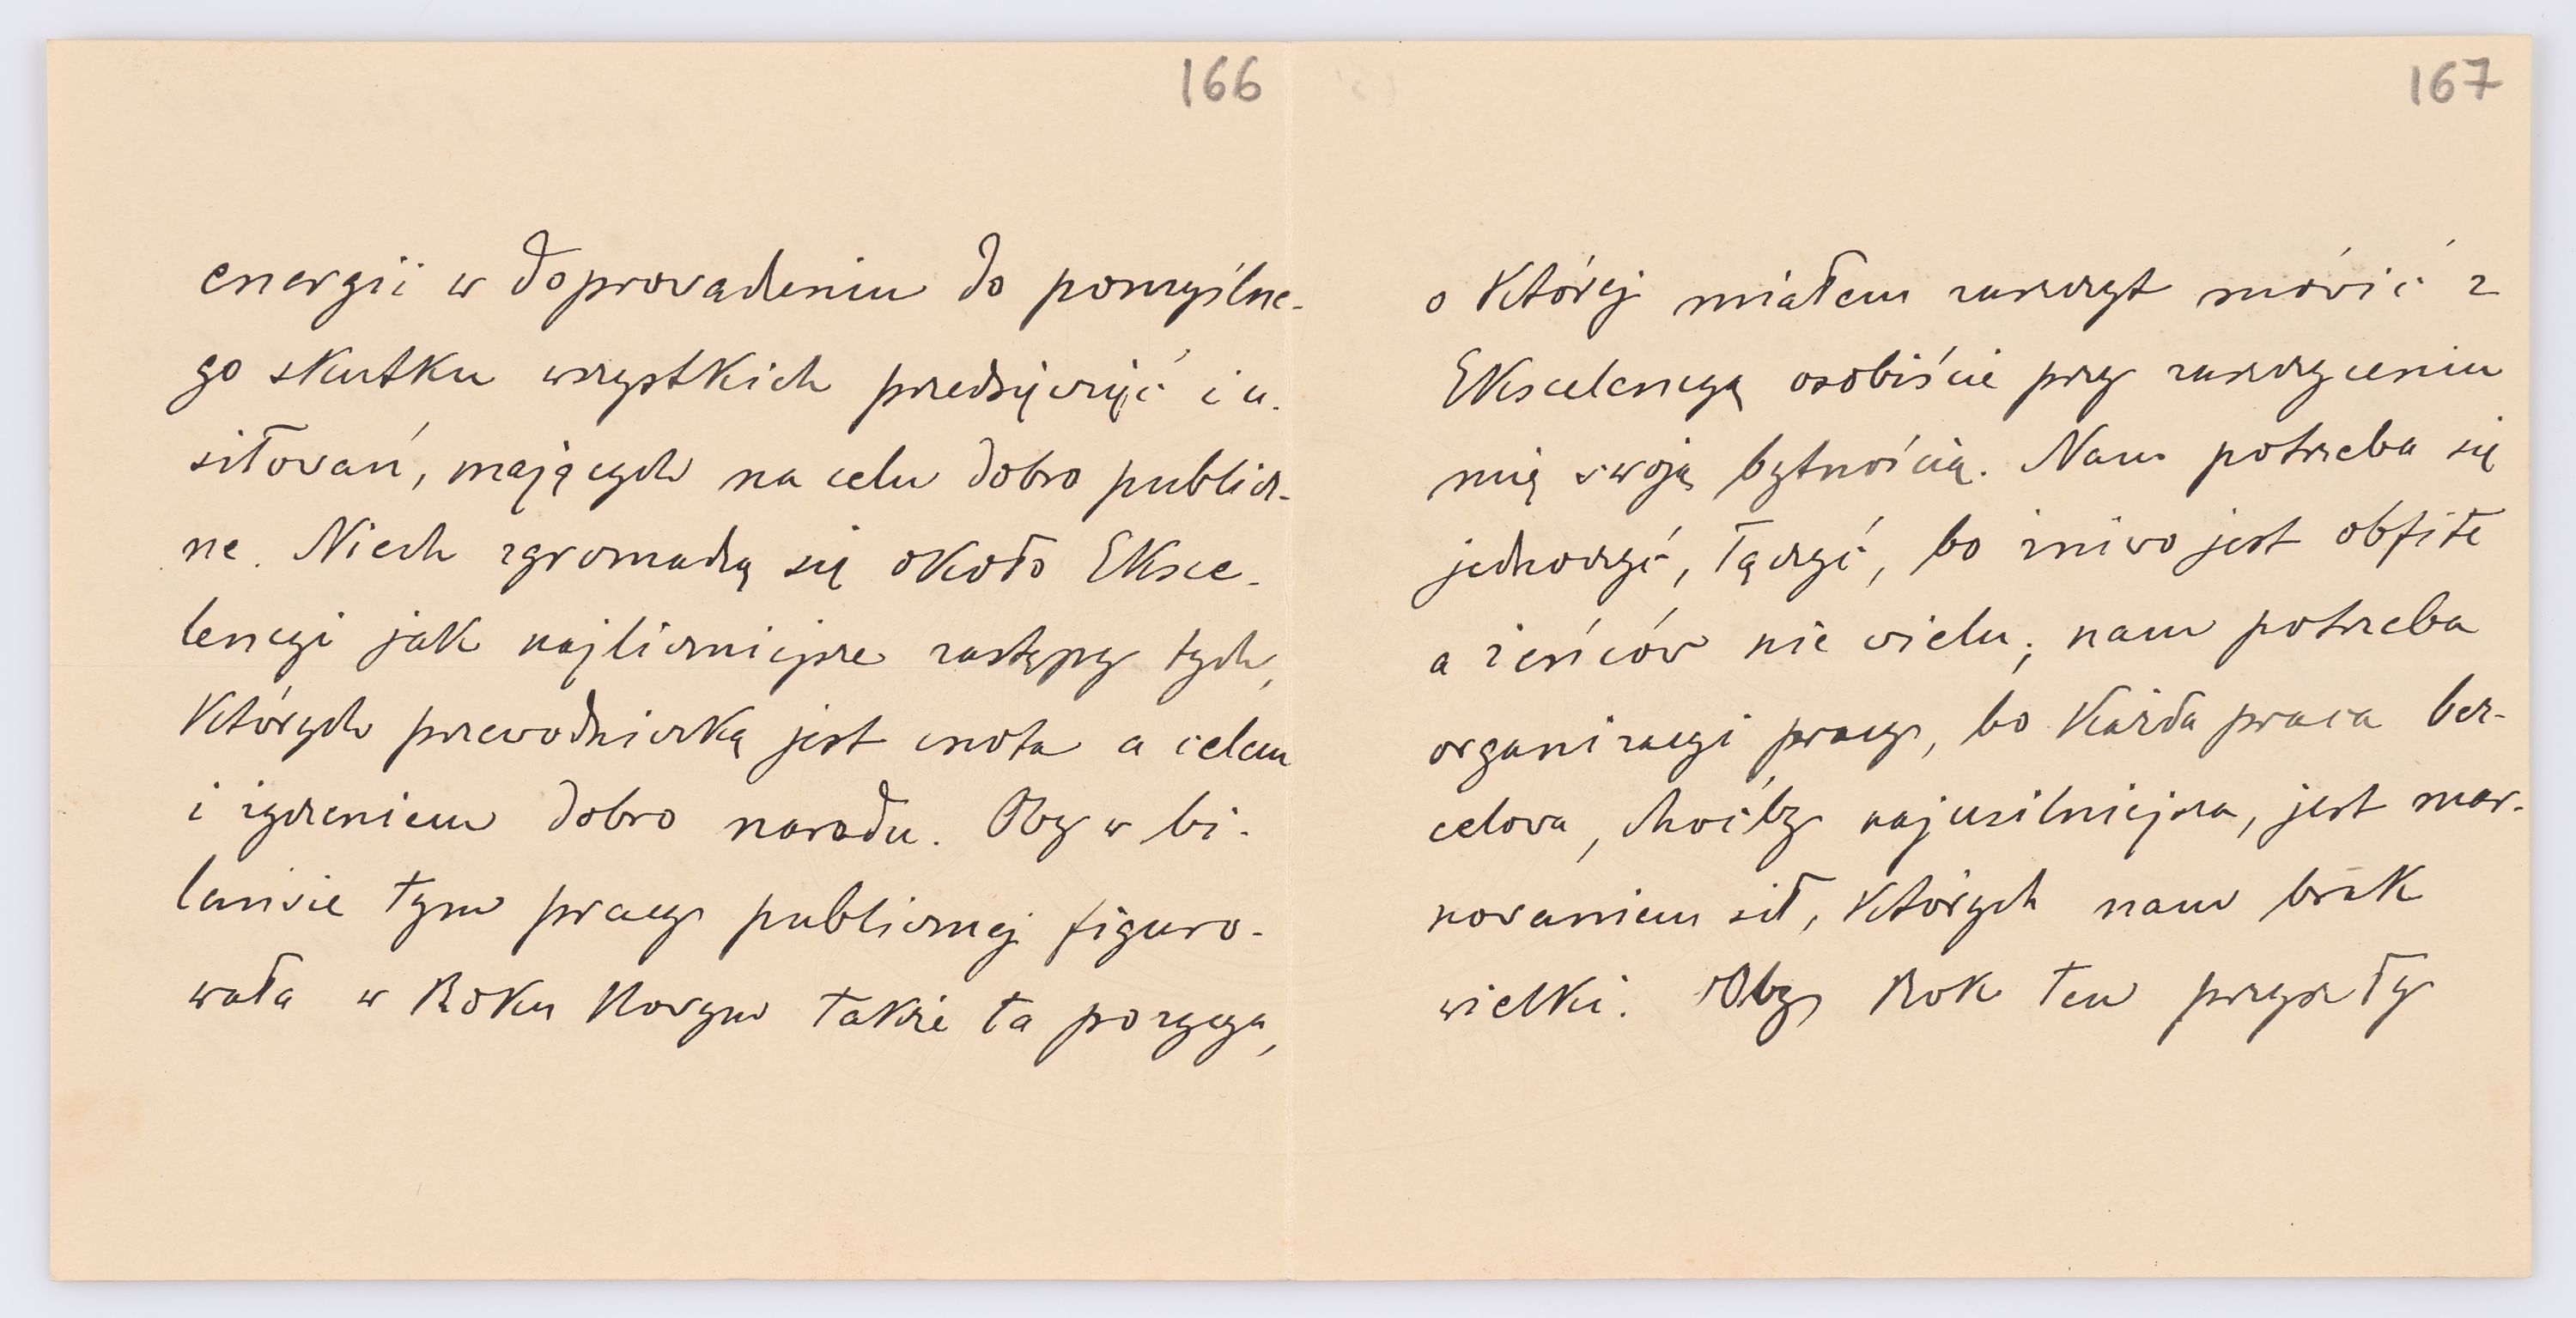 166
energii w doprowadzeniu do pomyślne-
go skutku wszystkich przedsięwzięć i u-
siłowań, mających na celu dobro publicz-
ne. Niech zgromadzą się około Eksce-
lencyi jak najliczniejsze zastępy tych,
których przewodniczką jest cnota a celem
i życzeniem dobro narodu. Oby w bi-
lansie tym pracy publicznej figuro-
wała w Roku Nowym także ta pozycya,
167
o której miałem zaszczyt mówić z
Ekscelencyą osobiście przy zaszczyceniu
mię swoją bytnością. Nam potrzeba się
jednoczyć, łączyć, bo żniwo jest obfite
a żeńców nie wielu; nam potrzeba
organizacyi pracy, bo każda praca bez-
celowa, choćby najusilniejsza, jest mar-
nowaniem sił, których nam brak
wielki. Oby Rok ten przyszły